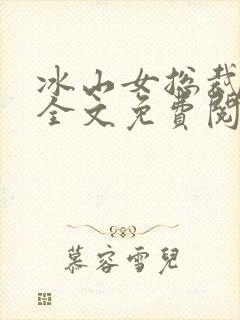 冰山女总裁
全文免費閱
慕容雪兒